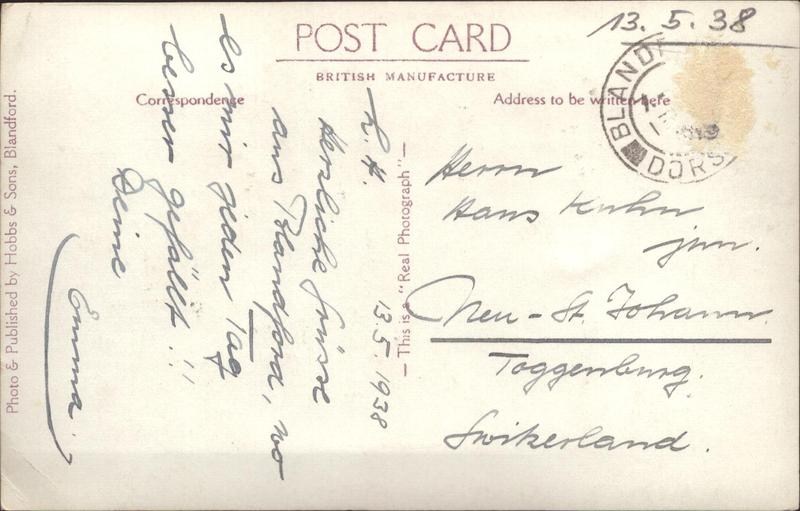 13. 5. 38
POST CARD
BRITISH MANUFACTURE
Correspondence
Address to be written here
BLANDF
DORS
L. H. 13.5.1938
Herzliche Grüsse
aus Blandford, wo
es mir jeden Tag
besser gefällt!!
Deine
Emma.
Herrn
Hans Kuhn
jun.
Neu - St. Johann.
Toggenburg.
Switzerland.
— This is a "Real Photograph" —
Photo & Published by Hobbs & Sons, Blandford.